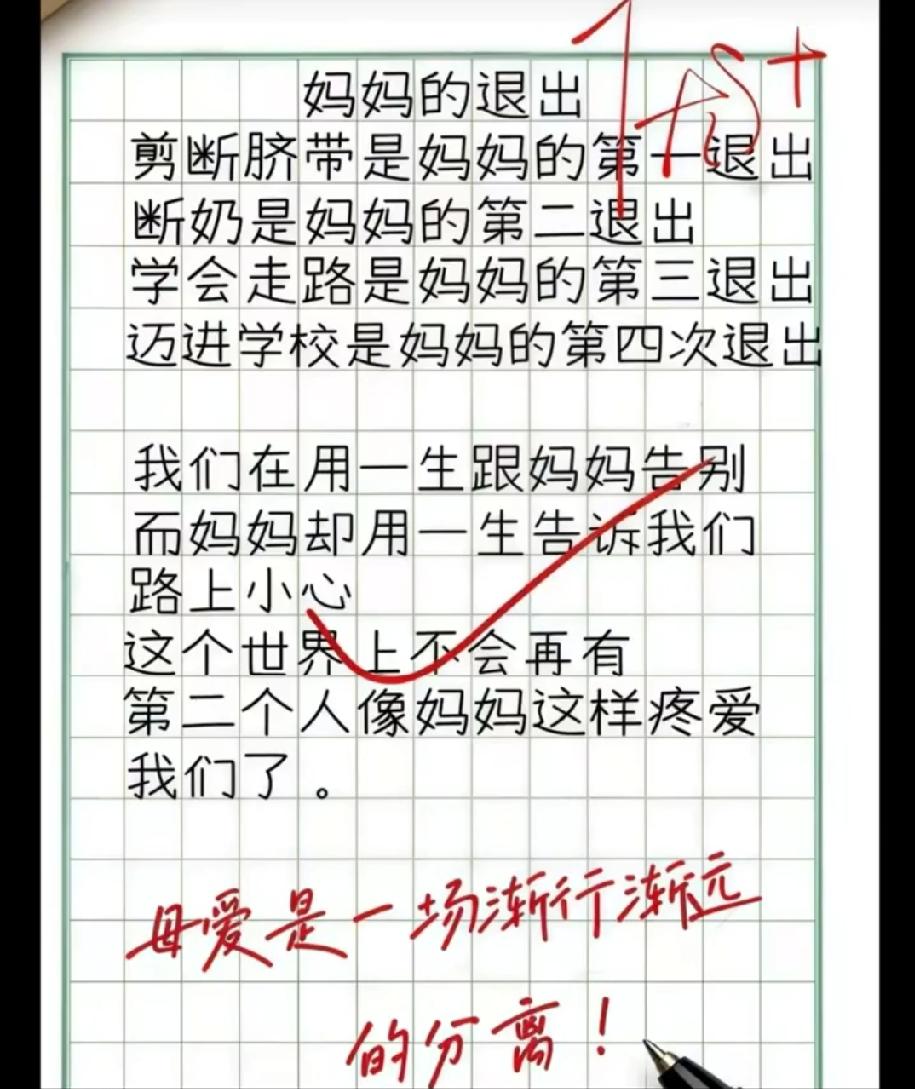 妈妈的退出
剪断脐带是妈妈的第一退出
断奶是妈妈的第二退出
学会走路是妈妈的第三退出
迈进学校是妈妈的第四次退出
我们在用一生跟妈妈告别
而妈妈却用一生告诉我们
路上小心
这个世界上不会再有
第二个人像妈妈这样疼爱
我们了。
母爱是一场渐行渐远
的分离！